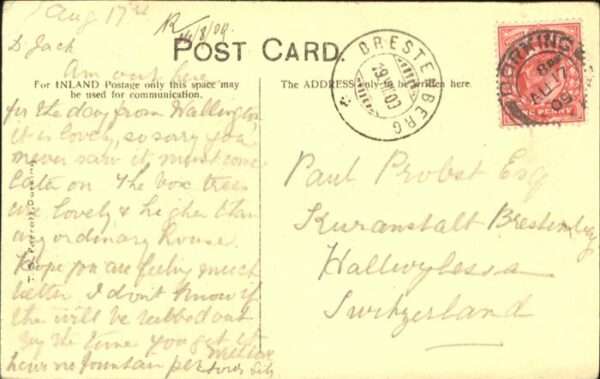 Aug 17th
R 19/8/09.
POST CARD.
D Jack
Am out here
For INLAND Postage only this space may
be used for communication.
The ADDRESS only to be written here.
for the day from Wallington
it is lovely, so sorry you
never saw it, must come
later on. The box trees
are lovely & higher than
any ordinary house.
Hope you are feeling much
better. I don't know if
the will be rubbed out
by the time you get it
here no fountain pen
BRESTENBERG
DORKING
AU 17
09
PENNY
Paul Probst Esq
Kuranstalt Brestenberg
Hallwylersee
Switzerland